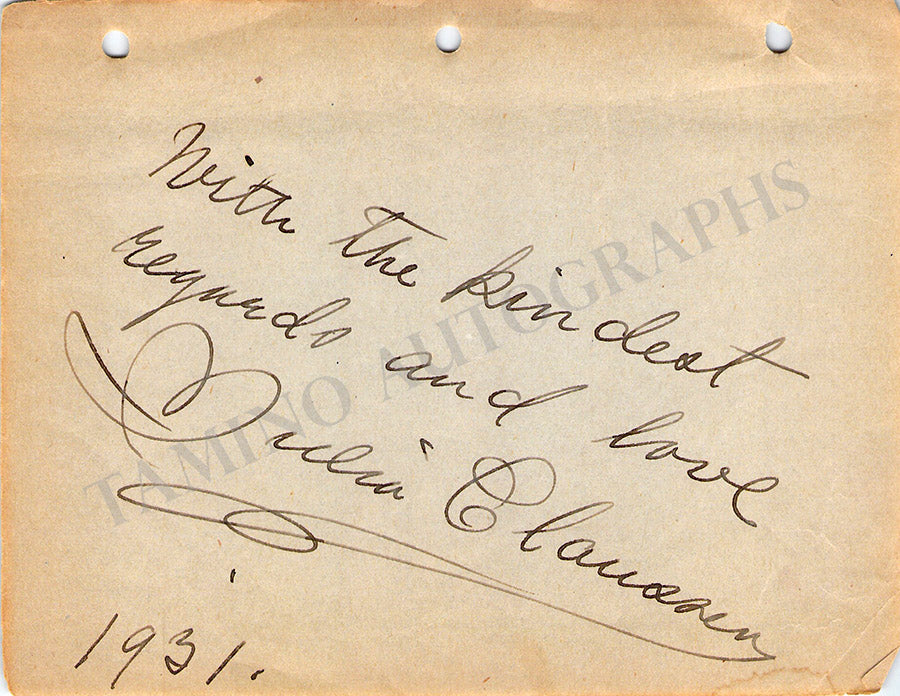 With the kindest
regards and love
Julia Claussen
1931.
TAMINO AUTOGRAPHS